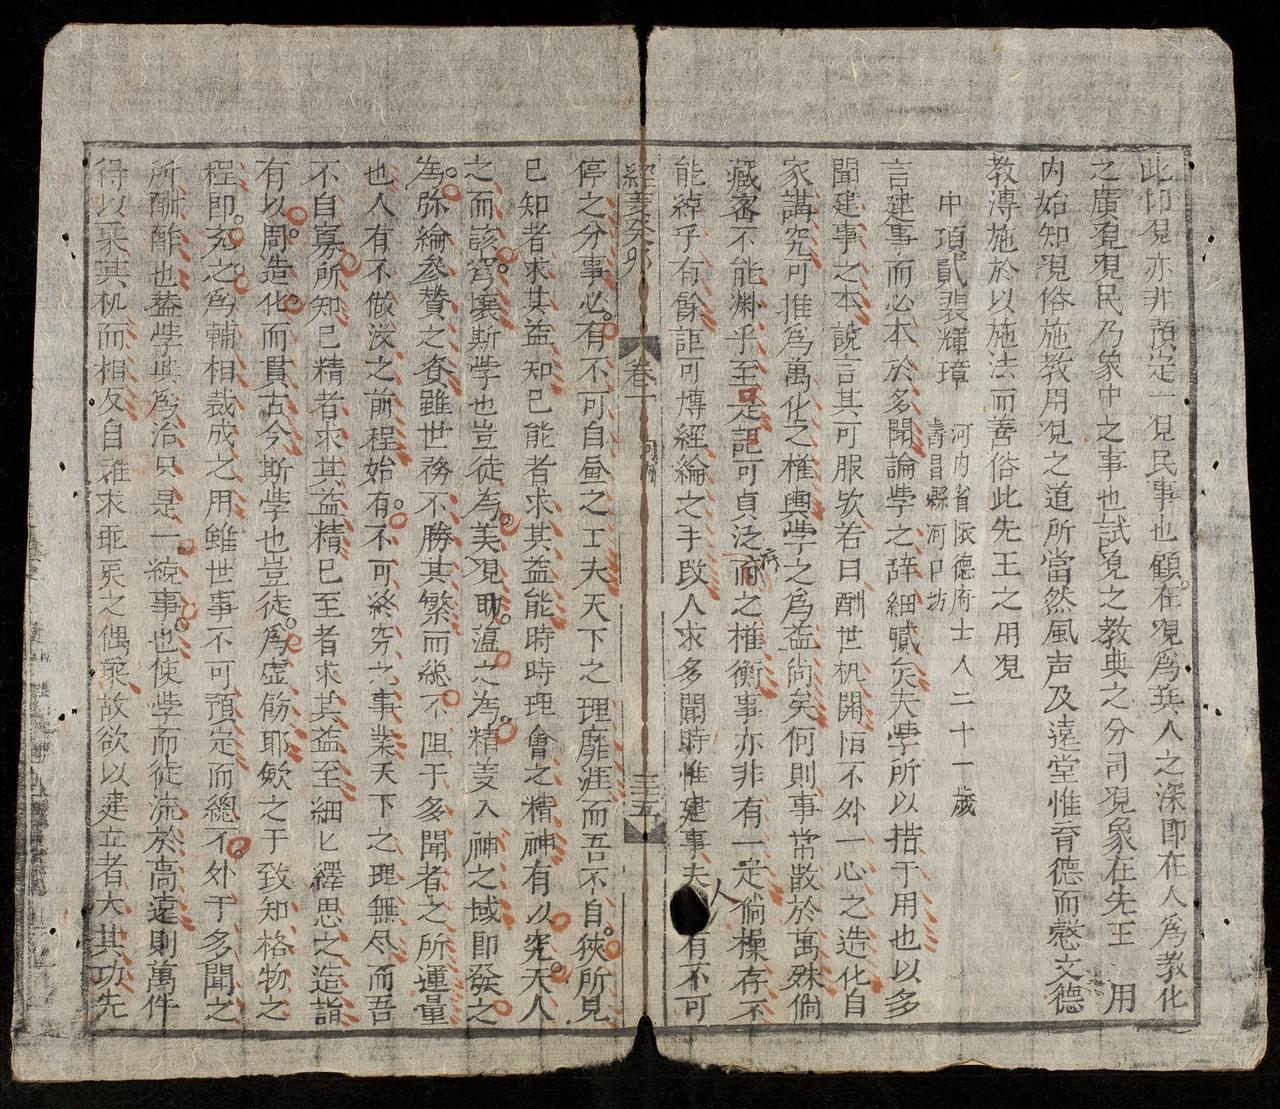 此仰覌亦非預定一覌民事也顧在覌爲其人之深即在人爲教化
之廣覔覌民乃象中之事也試覌之教典之分司覌象在先王用
内始知覌俗施教用覌之道所當然風声及遠堂惟育德而慜文德
教溥施於以施法而善俗此先王之用覌
中項貳裴輝璋
河内省依德府士人二十一歲
壽昌縣河口坊
言建事而必本於多聞論學之辞細貳矣夫學所以措于用也以多
聞建事之本說言其可服欤若曰酬世机開怕不外一心之造化自
家講究可推爲萬化之權輿學之爲益尚矣何則事常散於萬殊倘
藏畜不能淋乎至足詎可貞泛而之權衡事亦非有一定倘操存不
能綽乎有餘詎可慱經綸之手故人求多聞時惟建事夫人有不可
經義癸卯
卷一
三十五
停之分事必有不可自畫之工夫天下之理靡涯而吾不自狹所見
已知者求其益知已能者求其益能時時理會之精神有以究天人
之而該穹壤斯學也豈徒為美覌耿温之為精姜入神之域即發之
為弥綸參賛之資雖世務不勝其繁而總不阻于多聞者之所運量
也人有不做沒之前程始有不可終穷之事業天下之理無尽而吾
不自寡所知已精者求其益精已至者求其益至細匕繹思之造詣
有以周造化而貫古今斯學也豈徒爲虚餙耶欸之于致知格物之
程即充之爲輔相裁成之用雖世事不可預定而總不外于多聞之
所酬酢也蓋學與爲治只是一統事也使學而徒流於高遠則萬件
得以乘其机而相反自進求乖戾之偶乘故欲以建立者大其功先